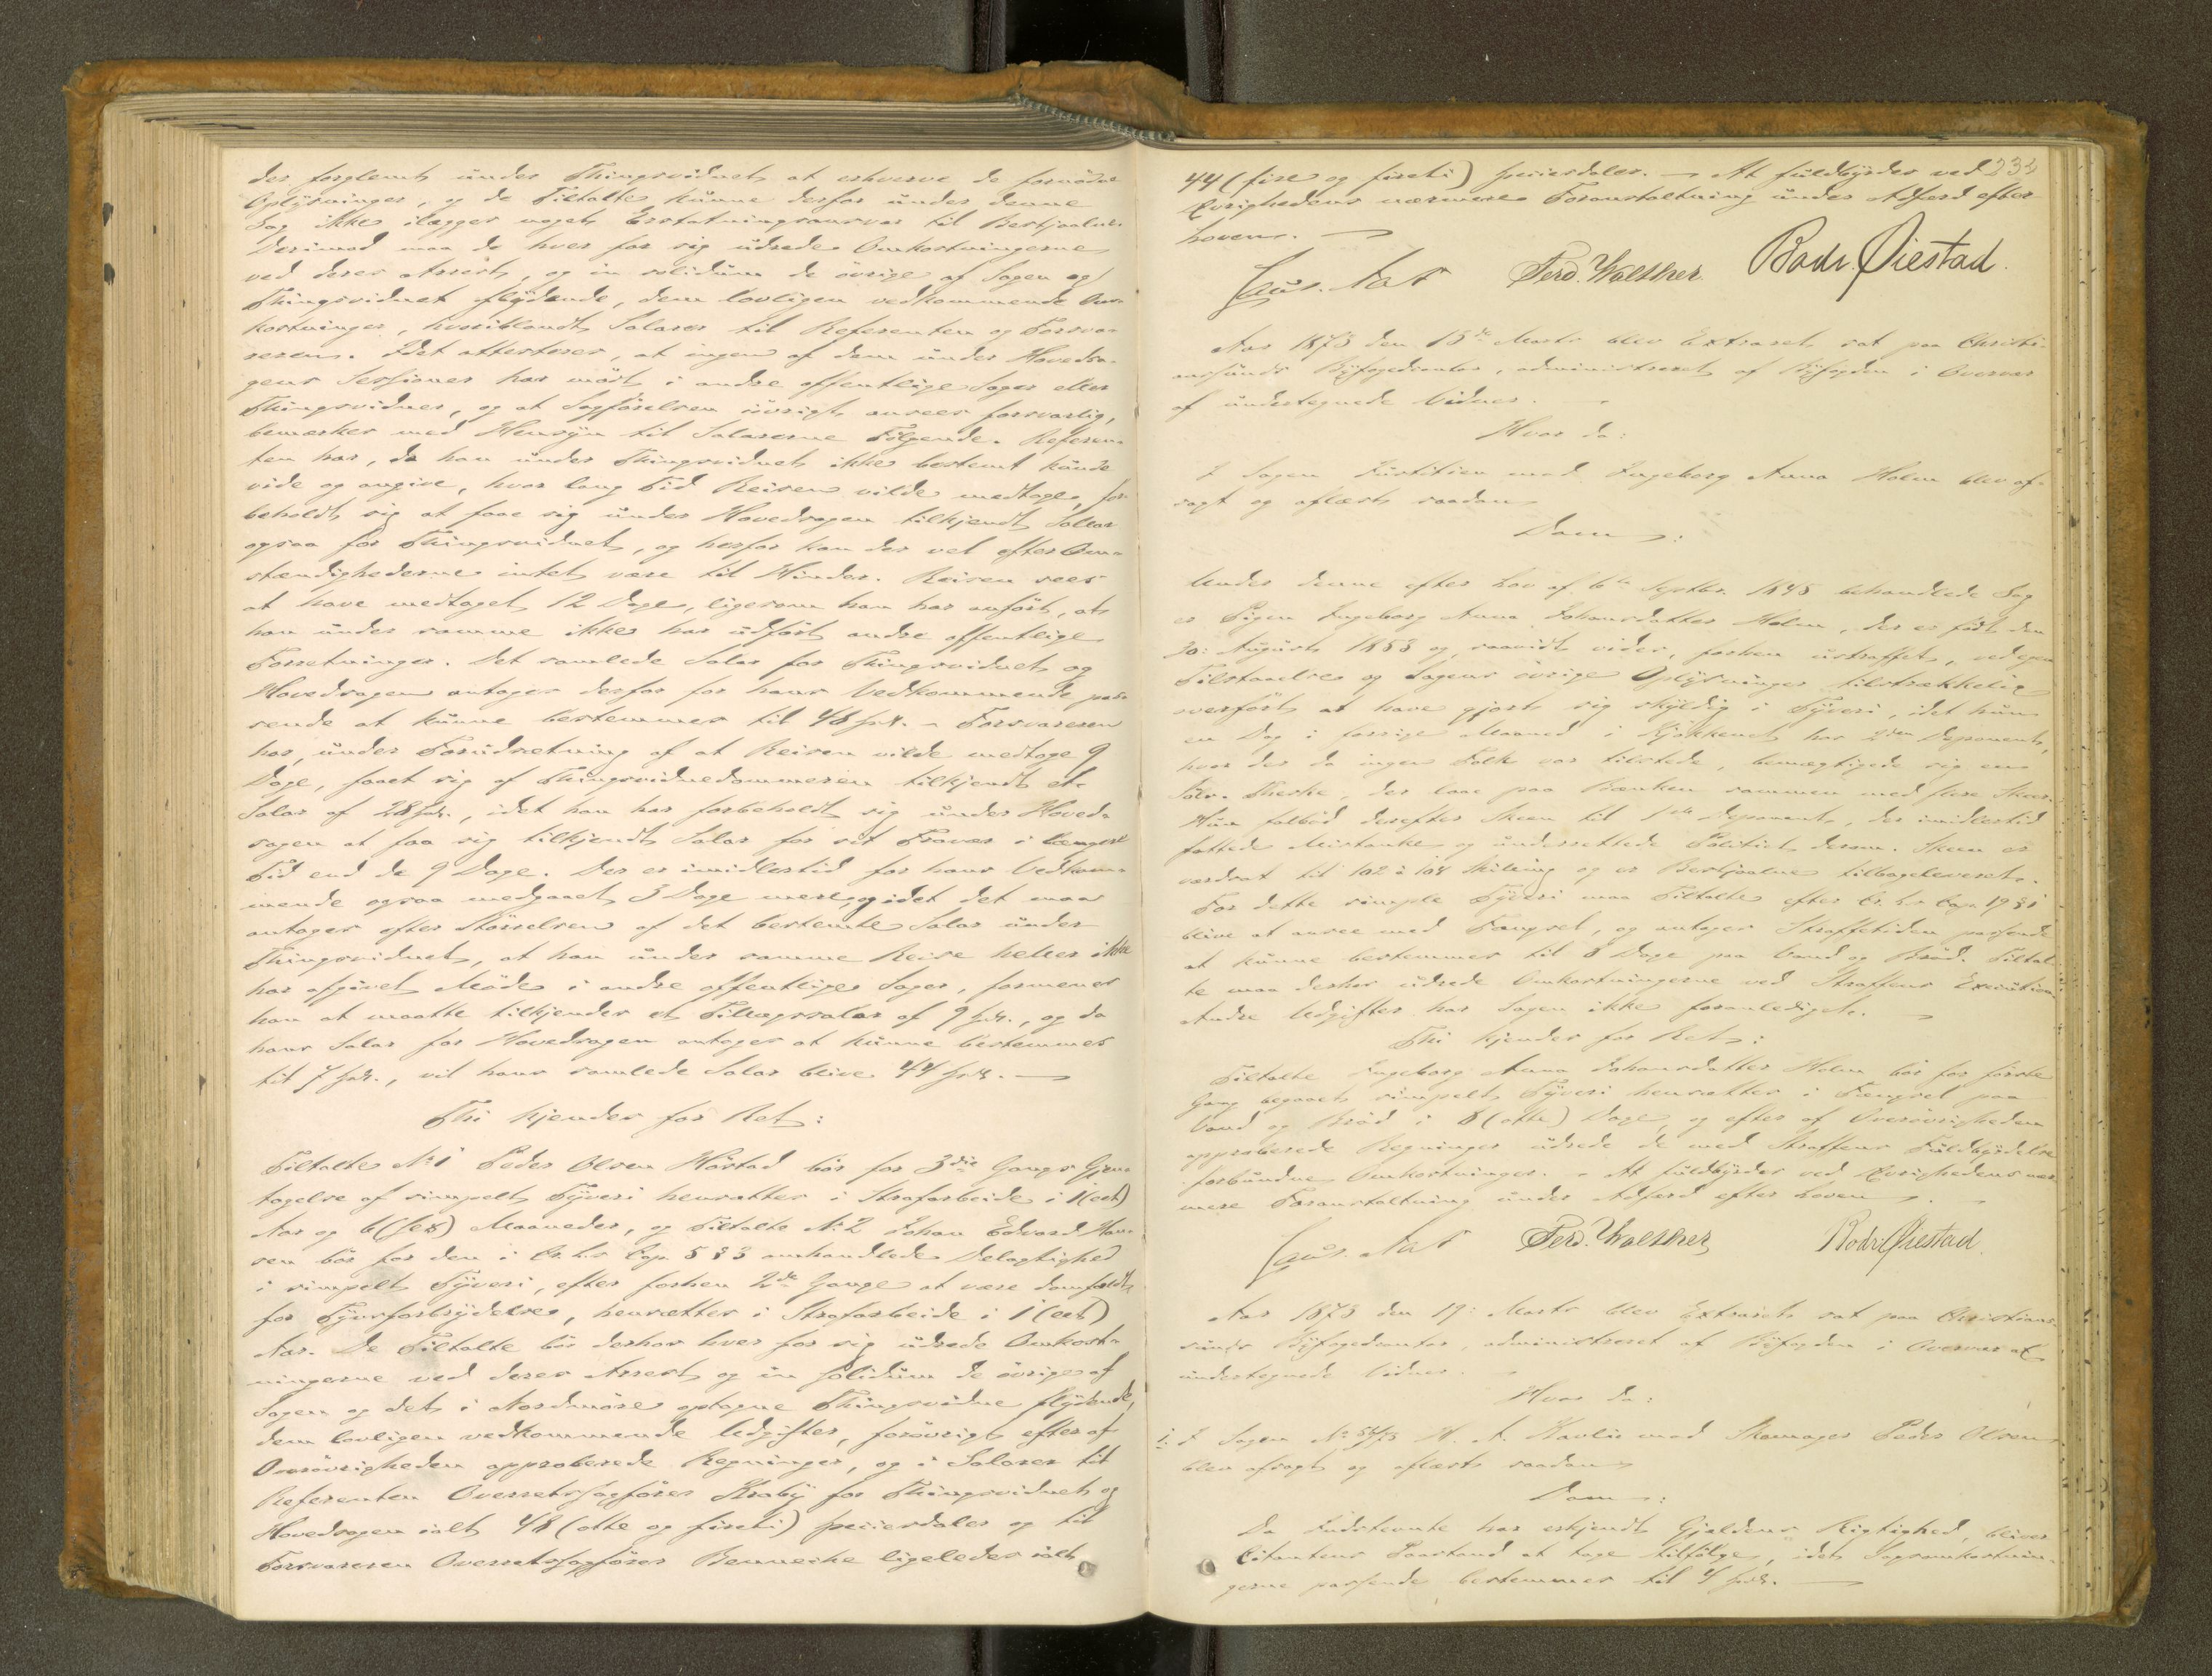 der forglemt under Thingsvidnet at erhverve de fornødne
Oplysninger, og de Tiltalte kunne derfor under denne
Sag ikke ilægges noget Erstatningsansvar til Bestjaalne.
Derimod maa de hver for sig udrede Omkostningerne
ved deres Arrest, og in solidum de øvrige af Sagen og
Thingsvidnet flydende, dem lovligen vedkommende Om-
kostninger, hvoriblandt Salarer til Referenten og Forsva-
reren. Idet attesteres, at ingen af dem under Hovedsa-
gens Sessioner har mødt i andre offentlige Sager eller
Thingsvidner, og at Sagførelsen iøvrigt ansees forsvarlig,
bemærkes med Hensyn til Salarerne Følgende. Referen-
ten har, da han under Thingsvidnet ikke bestemt kunde
vide og angive, hvor lang Tid Reisen vilde medtage, for-
beholdt sig at faae sig under Hovedsagen tilkjendt Salar
ogsaa for Thingsvidnet, og herfor kan der vel efter Om-
stændighederne intet være til Hinder. Reisen sees
at have medtaget 12 Dage, ligesom han har anført, at
han under samme ikke har udført andre offentlige
Forretninger. Det samlede Salar for Thingsvidnet og
Hovedsagen antages derfor for hans Vedkommende pas-
sende at kunne bestemmes til 48 Spd. - Forsvareren
har, under Forudsætning af at Reisen vilde medtage 9
Dage, faaet sig af Thingsvidnedommeren tilkjendt et
Salar af 28 Spd., idet han har forbeholdt sig under Hoved-
sagen at faa sig tilkjendt Salar for sit Fravær i længere
Tid end de 9 Dage. Der er imidlertid for hans Vedkom-
mende ogsaa medgaaet 3 Dage mere, og idet det maa
antages efter Størrelsen af det bestemte Salar under
Thingsvidnet, at han under samme Reise heller ikke
har afgivet Møde i andre offentlige Sager, formenes
han at maatte tilkjendes et Tillægssalar af 9 Spd., og da
hans Salar for Hovedsagen antages at kunne bestemmes
til 7 Spd., vil hans samlede Salar blive 44 Spd. —
Thi kjendes for Ret:
Tiltalte No 1 Peder Olsen Hörstad bör for 3die Gangs Gjen-
tagelse af simpelt Tyveri hensættes i Strafarbeide i 1 (eet)
Aar og 6 (sex) Maaneder, og Tiltalte No 2 Johan Edvard Han-
sen bör for den i Cr. Lv Cap. 5 § 3 omhandlede Delagtighed
i simpelt Tyveri, efter forhen 2de Gange at være domfældt
for Tyvsforbrydelse, hensættes i Strafarbeide i 1 (eet)
Aar. De Tiltalte bör derhos hver for sig udrede Omkost-
ningerne ved deres Arrest og in solidum de øvrige af
Sagen og det i Nordmöre optagne Thingsvidne flydende,
dem lovligen vedkommende Udgifter, forøvrigt efter af
Overøvrigheden approberede Regninger, og i Salarer til
Referenten Overretssagfører Kraby for Thingsvidnet og
Hovedsagen ialt 48 (otte og fireti) Speciesdaler og til
Forsvareren Overretssagfører Bennecke ligeledes ialt
232
44 (fire og fireti) Speciesdaler. — At fuldbyrdes ved
Øvrighedens nærmere Foranstaltning under Adfærd efter
Loven. —
Ferd. Walther. Bodv. Øiestad.
Aar 1873 den 15de Marts blev Extraret sat paa Christi-
anssunds Byfogedcontor, administreret af Byfogden i Overvær
af undertegnede Vidner. —
Hvor da:
I Sagen Justitien mod Ingeborg Anna Holm blev af-
sagt og aflæst saadan
Dom:
Under denne efter Lov af 6te Septbr. 1845 behandlede Sag
er Pigen Ingeborg Anna Johansdatter Holm, der er født den
30: August 1853 og, saavidt vides, forhen ustraffet, ved egen
Tilstaaelse og Sagens øvrige Oplysninger tilstrækkelig
overført at have gjort sig skyldig i Tyveri, idet hun
en Dag i forrige Maaned i Kjøkkenet hos 2den Deponent,
hvor der da ingen Folk var tilstede, bemægtigede sig en
Sölv-Theske, der laae paa Bænken sammen med flere Skeer.
Hun falböd derefter Skeen til 1ste Deponent, der imidlertid
fattede Mistanke og underrettede Politiet derom. Skeen er
værdsat til 102 à 108 Skilling og er Bestjaalne tilbageleveret.
For dette simple Tyveri maa Tiltalte efter Cr. Lv Cap. 19 § 1
blive at ansee med Fængsel, og antages Straffetiden passende
at kunne bestemmes til 8 Dage paa Vand og Bröd. Tiltal-
te maa derhos udrede Omkostningerne ved Straffens Execution.
Andre Udgifter har Sagen ikke foranlediget. —
Thi kjendes for Ret:
Tiltalte Ingeborg Anna Johansdatter Holm bör for förste
Gang begaaet simpelt Tyveri hensættes i Fængsel paa
Vand og Bröd i 8 (otte) Dage, og efter af Overøvrigheden
approberede Regninger udrede de med Straffens Fuldbyrdelse
forbundne Omkostninger. - At fuldbyrdes ved Øvrighedens nær-
mere Foranstaltning under Adfærd efter Loven.
Ferd. Walther, Bodv. Øiestad.
Aar 1873 den 19: Marts blev Extraret sat paa Christians-
sunds Byfogedcontor, administreret af Byfogden i Overvær af
undertegnede Vidner.
Hvor da:
1: I Sagen No H. A. Havlie mod Skomager Peder Olsen
blev afsagt og aflæst saadan
Dom:
Da Indstevnte har erkjendt Gjældens Rigtighed, bliver
Citantens Paastand at tage tilfölge, idet Sagsomkostnin-
gerne passende bestemmes til 4 Spd. —